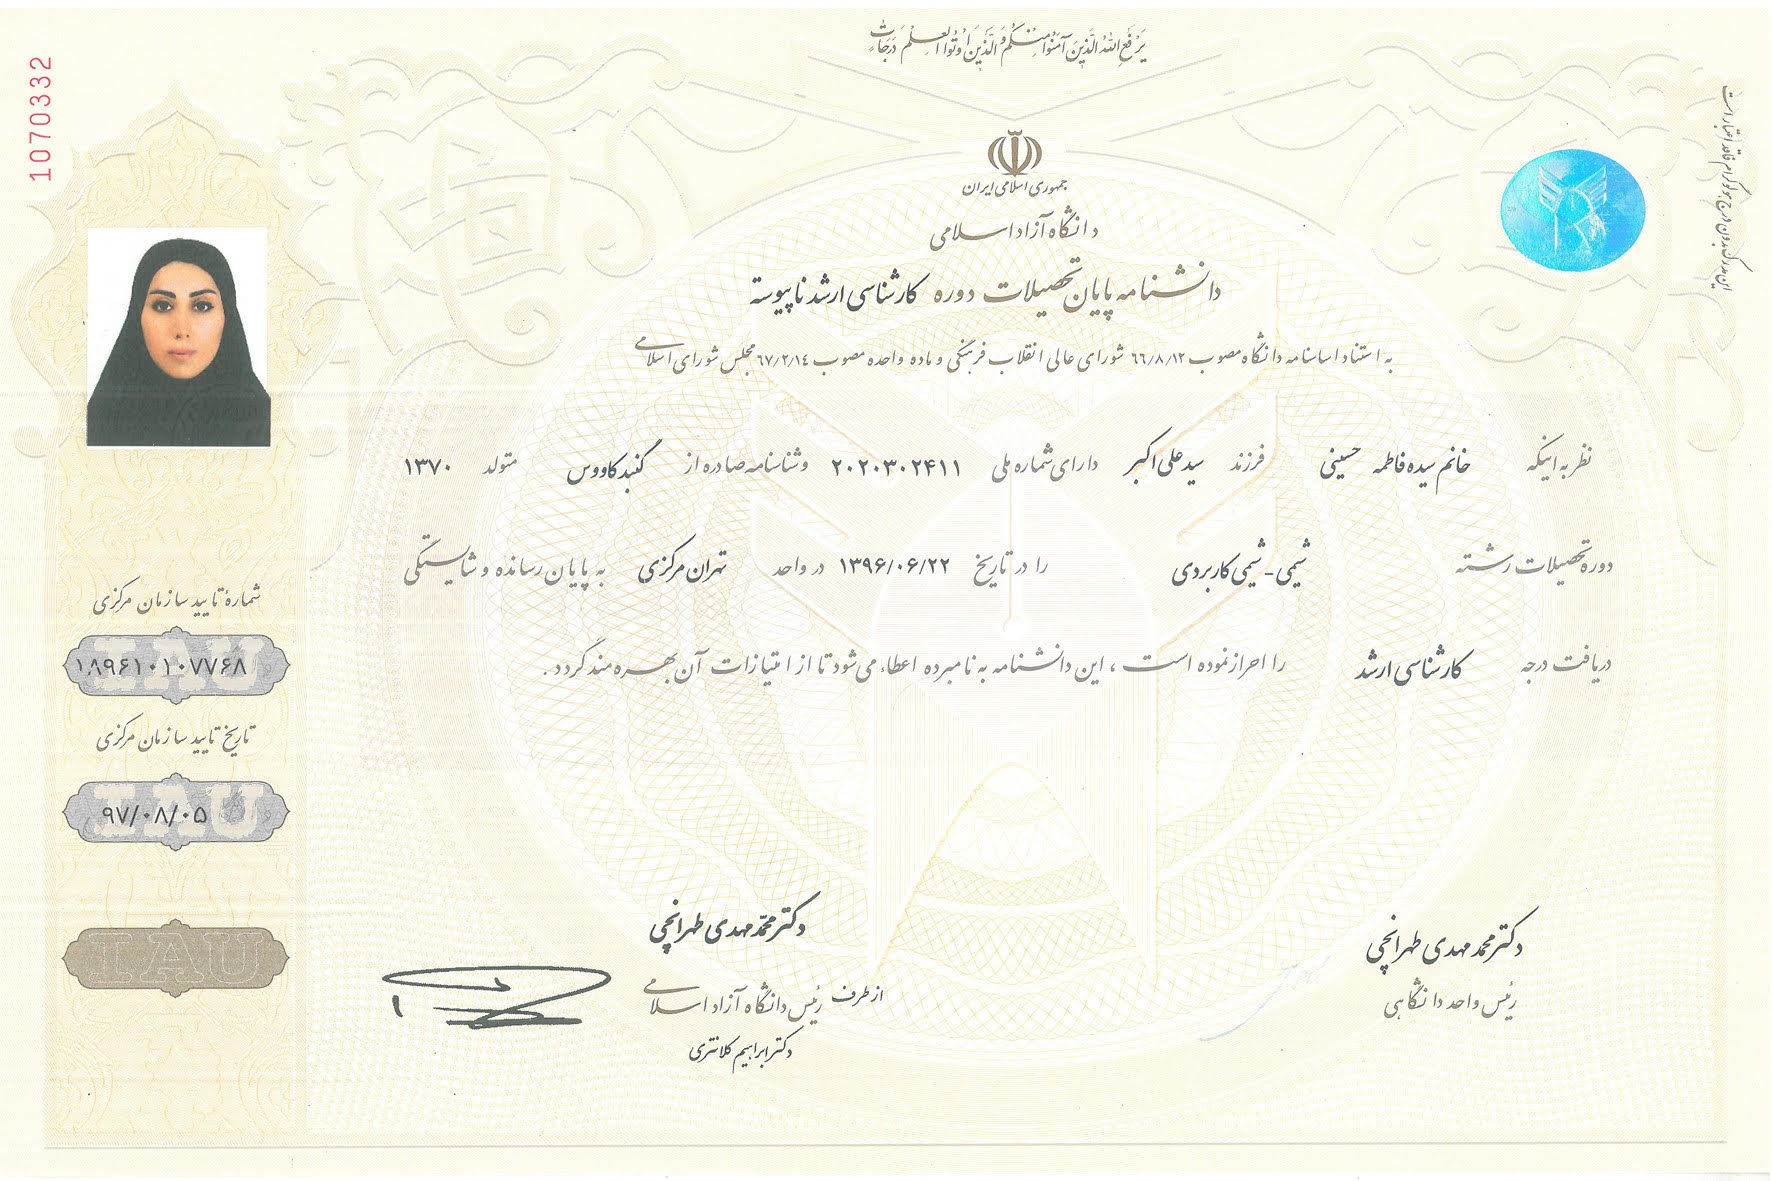 یَرفَعِ اللهُ الَّذینَ آمَنُوا مِنکُم وَالَّذینَ اُوتُوا العِلمَ دَرَجات
1070332
این مدرک بدون درج هولوگرام فاقد اعتبار است
جمهوری اسلامی ایران
دانشگاه آزاد اسلامی
دانشنامه پایان تحصیلات دوره کارشناسی ارشد ناپیوسته
به استناد اساسنامه دانشگاه مصوب ۶۶/۸/۱۲ شورای عالی انقلاب فرهنگی و ماده واحده مصوب ۶۷/۲/۱۴ مجلس شورای اسلامی
نظر به اینکه خانم سیده فاطمه حسینی فرزند سید علی اکبر دارای شماره ملی ۲۰۲۰۳۰۲۴۱۱ و شناسنامه صادره از گنبد کاووس متولد ۱۳۷۰
دوره تحصیلات رشته شیمی - شیمی کاربردی را در تاریخ ۱۳۹۶/۰۶/۲۲ در واحد تهران مرکزی به پایان رسانده و شایستگی
دریافت درجه کارشناسی ارشد را احراز نموده است ، این دانشنامه به نامبرده اعطاء می‌شود تا از امتیازات آن بهره مند گردد .
شماره تایید سازمان مرکزی
۱۸۹۶۱۰۱۰۷۷۶۸
تاریخ تایید سازمان مرکزی
۹۷/۰۸/۰۵
IAU
دکتر محمد مهدی طهرانچی
رئیس واحد دانشگاهی
دکتر محمّد مهدی طهرانچی
از طرف رئیس دانشگاه آزاد اسلامی
دکتر ابراهیم کلانتری